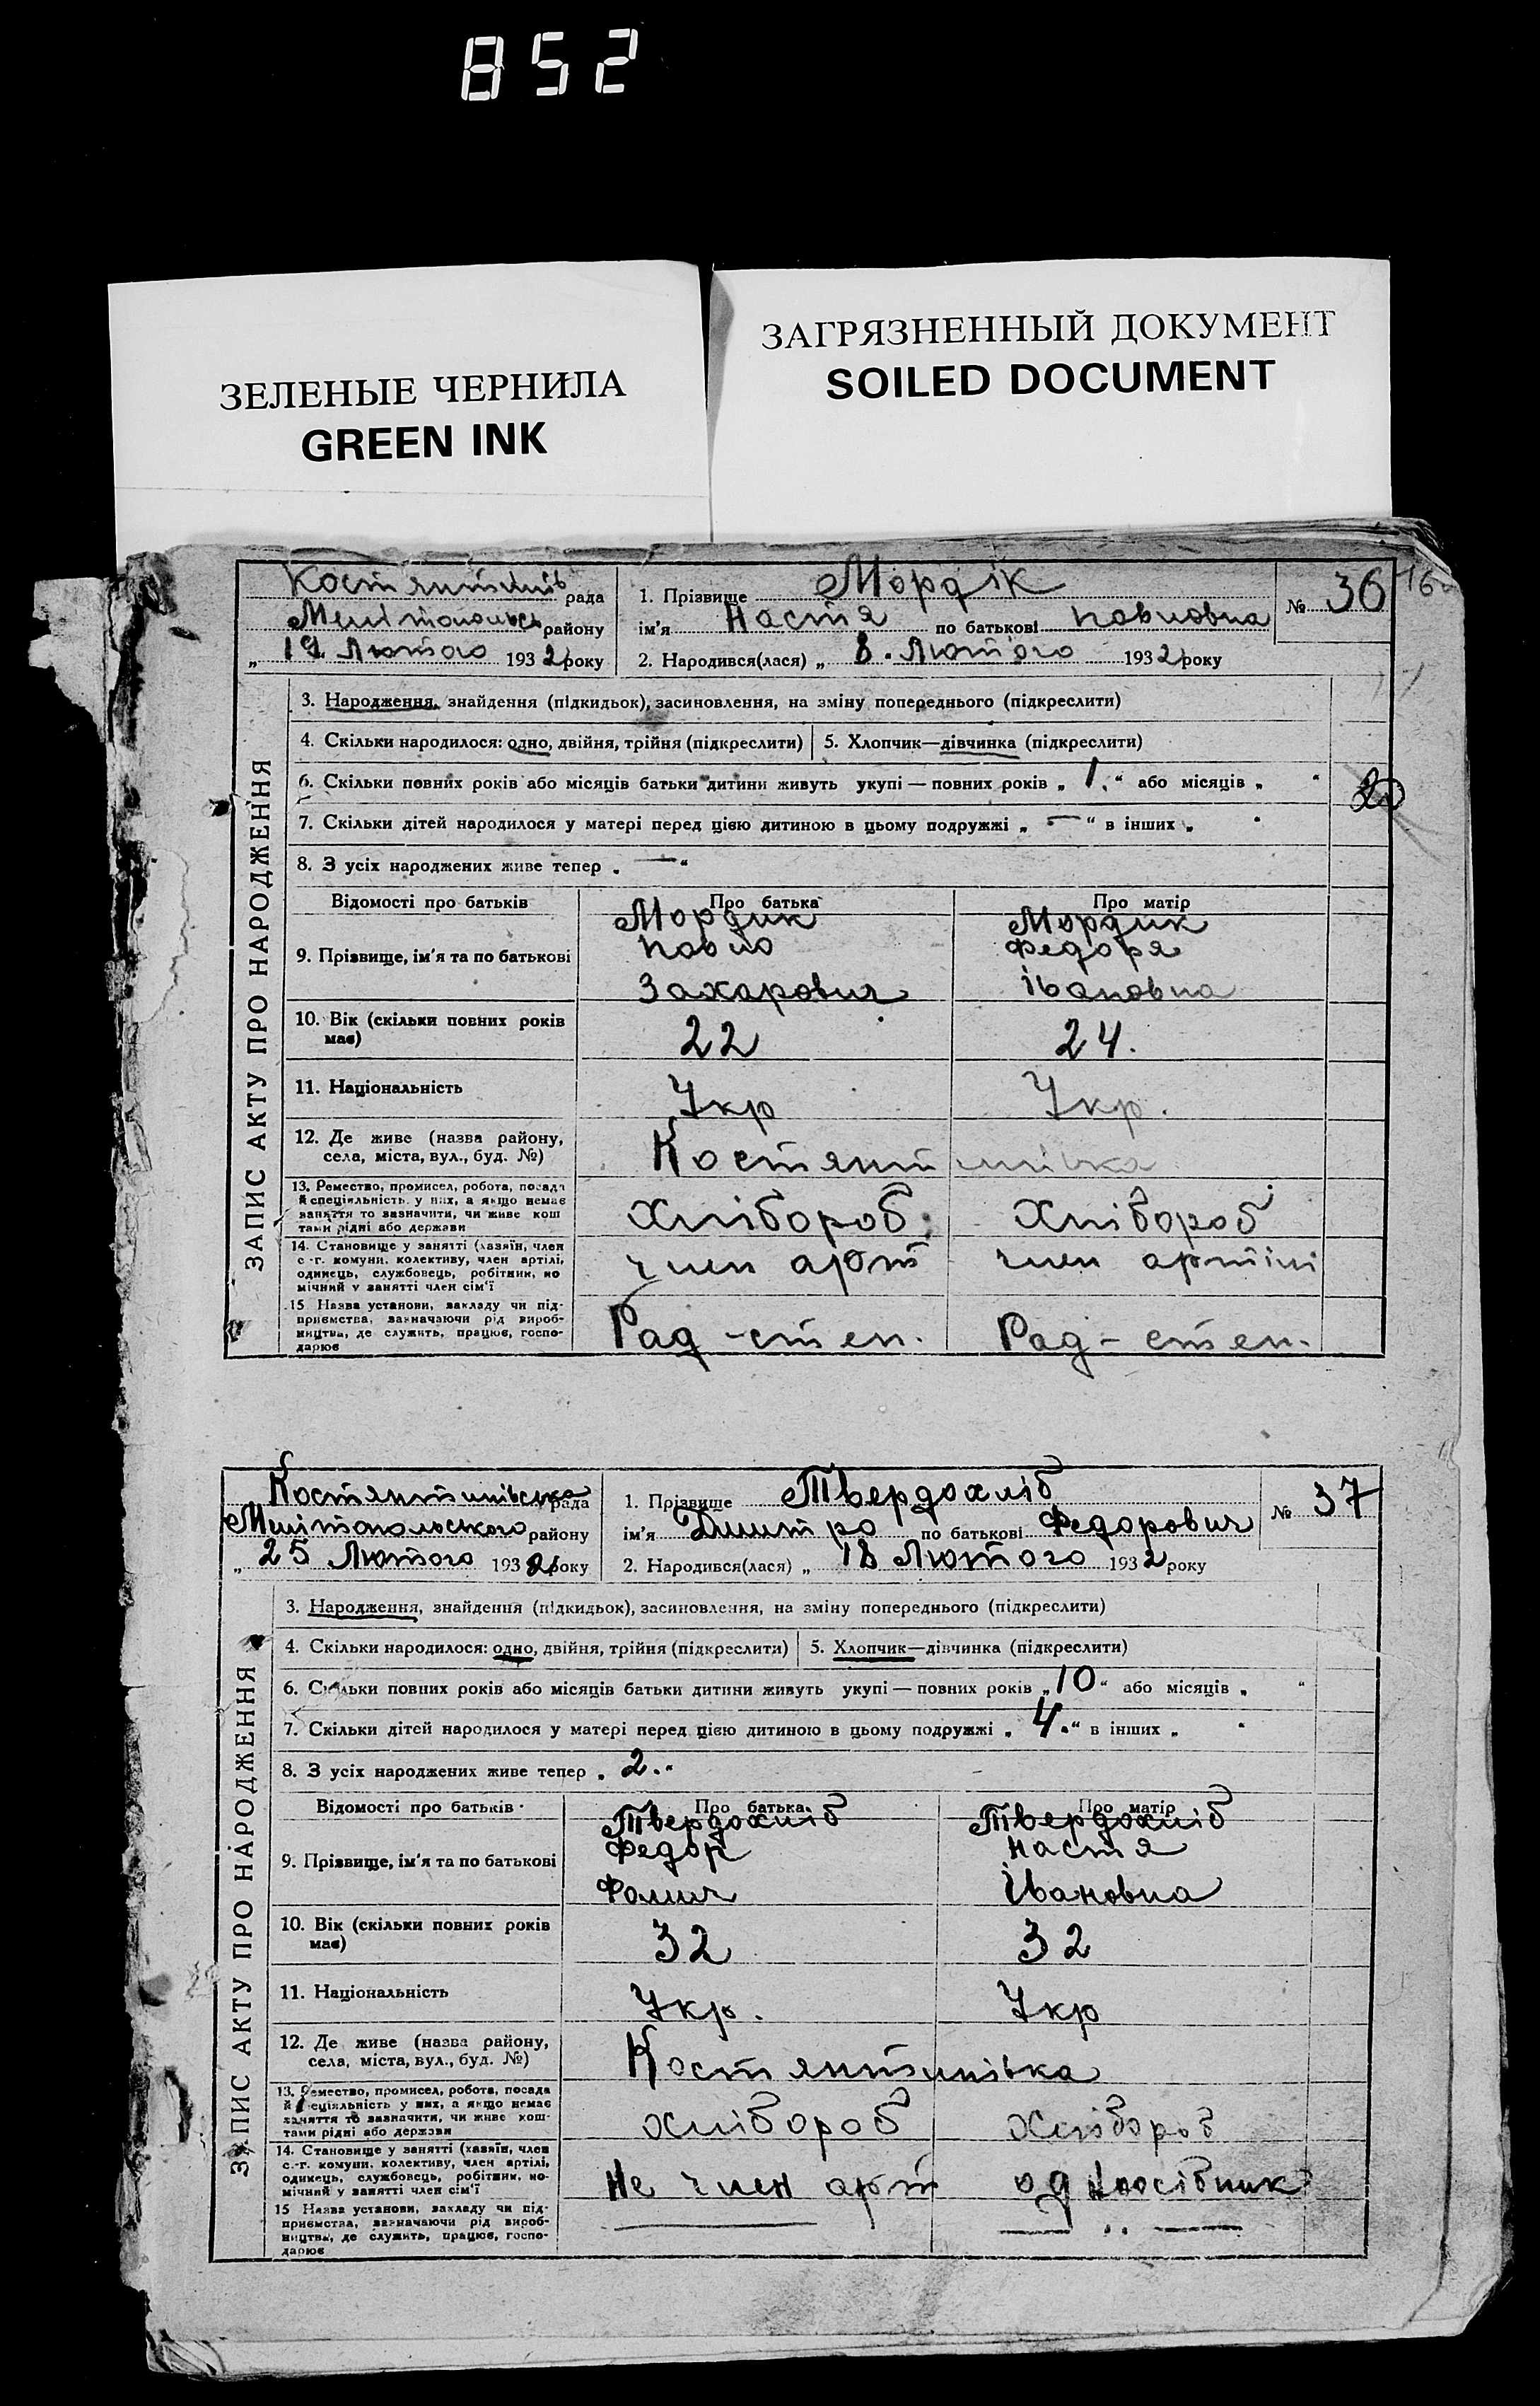 852
ЗЕЛЕНЫЕ ЧЕРНИЛА
GREEN INK
ЗАГРЯЗНЕННЫЙ ДОКУМЕНТ
SOILED DOCUMENT
Костянтинів рада
Мелітопольськ району
„ 19 Лютого 1932 року
1. Прізвище Мордік
ім'я Настя по батькові Павловна
2. Народився(лася) „ 8. Лютого 1932 року
№ 36
ЗАПИС АКТУ ПРО НАРОДЖЕННЯ
3. Народження, знайдення (підкидьок), засиновлення, на зміну попереднього (підкреслити)
4. Скільки народилося: одно, двійня, трійня (підкреслити) 5. Хлопчик—дівчинка (підкреслити)
6. Скільки повних років або місяців батьки дитини живуть укупі — повних років „ 1. “ або місяців „ “
7. Скільки дітей народилося у матері перед цією дитиною в цьому подружжі „ — “ в інших „ “
8. З усіх народжених живе тепер „ — “
Відомості про батьків Про батька Про матір
9. Прізвище, ім'я та по батькові
Мордик Павло Захарович
Мордик Федора Івановна
10. Вік (скільки повних років має) 22 24.
11. Національність Укр Укр.
12. Де живе (назва району, села, міста, вул., буд. №) Костянтинівка
13. Ремество, промисел, робота, посада й спеціяльність у них, а якщо немає заняття то зазначити, чи живе коштами рідні або держави
Хлібороб Хлібороб
14. Становище у занятті (хазяїн, член с.-г. комуни, колективу, член артілі, одинець, службовець, робітник, помічний у занятті член сім'ї
член арт член артілі
15 Назва установи, закладу чи підприємства, зазначаючи рід виробництва, де служить, працює, господарює
Рад-степ. Рад-степ.
Костянтинівська рада
Мелітопольського району
„ 25 Лютого 1932 року
1. Прізвище Твердохліб
ім'я Дмитро по батькові Федорович
2. Народився(лася) „ 18 Лютого 1932 року
№ 37
ЗАПИС АКТУ ПРО НАРОДЖЕННЯ
3. Народження, знайдення (підкидьок), засиновлення, на зміну попереднього (підкреслити)
4. Скільки народилося: одно, двійня, трійня (підкреслити) 5. Хлопчик—дівчинка (підкреслити)
6. Скільки повних років або місяців батьки дитини живуть укупі — повних років „ 10 “ або місяців „ “
7. Скільки дітей народилося у матері перед цією дитиною в цьому подружжі „ 4. “ в інших „ “
8. З усіх народжених живе тепер „ 2. “
Відомості про батьків Про батька Про матір
9. Прізвище, ім'я та по батькові
Твердохліб Федор Фомич
Твердохліб Настя Івановна
10. Вік (скільки повних років має) 32 32
11. Національність Укр. Укр
12. Де живе (назва району, села, міста, вул., буд. №) Костянтинівка
13. Ремество, промисел, робота, посада й спеціяльність у них, а якщо немає заняття то зазначити, чи живе коштами рідні або держави
Хлібороб Хлібороб
14. Становище у занятті (хазяїн, член с.-г. комуни, колективу, член артілі, одинець, службовець, робітник, помічний у занятті член сім'ї
Не член арт одноосібник
15 Назва установи, закладу чи підприємства, зазначаючи рід виробництва, де служить, працює, господарює